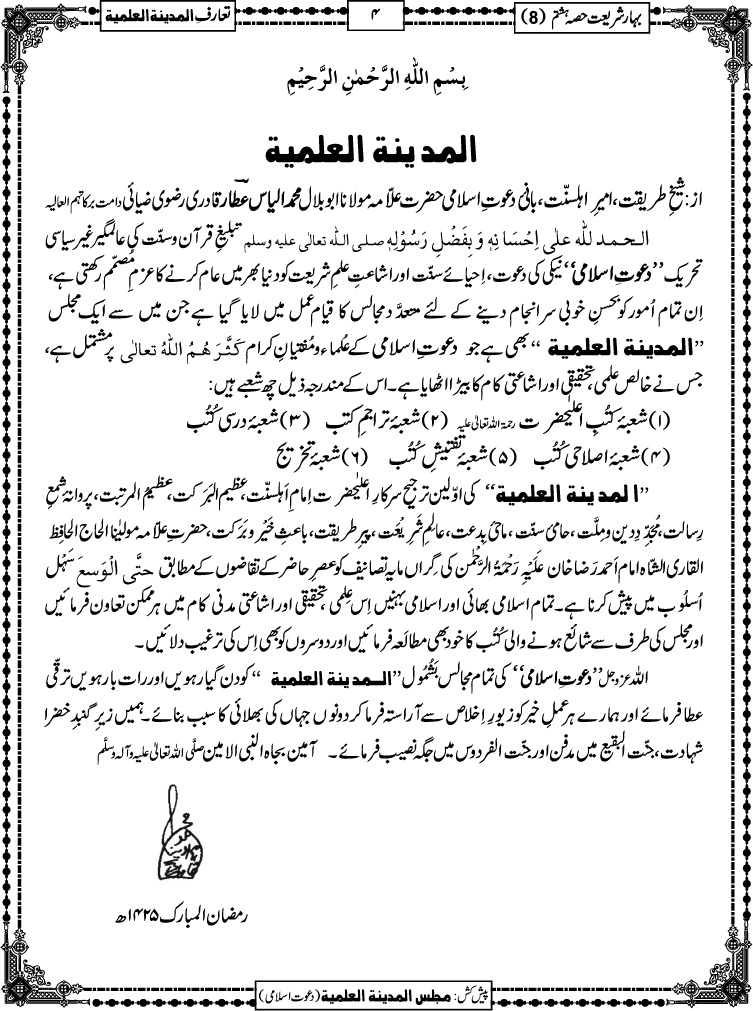 بہار شریعت حصہ ہشتم (8)
۴
تعارف المدینۃ العلمیۃ
بِسْمِ اللهِ الرَّحْمٰنِ الرَّحِیْمِ
المدینۃ العلمیۃ
از: شیخِ طریقت، امیرِ اہلسنّت، بانی دعوتِ اسلامی حضرت علّامہ مولانا ابو بلال محمد الیاس عطارؔ قادری رضوی ضیائی دامت برکاتہم العالیہ
الحمد للہ علٰی اِحْسَانِہٖ وَ بِفَضْلِ رَسُوْلِہٖ صلی اللہ تعالی علیہ وسلم تبلیغِ قرآن و سنت کی عالمگیر غیر سیاسی
تحریک ”دعوتِ اسلامی“ نیکی کی دعوت، اِحیائے سنّت اور اشاعتِ علمِ شریعت کو دنیا بھر میں عام کرنے کا عزمِ مُصمّم رکھتی ہے،
اِن تمام اُمور کو بحسنِ خوبی سر انجام دینے کے لئے متعدَّد مجالس کا قیام عمل میں لایا گیا ہے جن میں سے ایک مجلس
”المدینۃ العلمیۃ“ بھی ہے جو دعوتِ اسلامی کے عُلماء و مُفتیانِ کرام کَثَّرَ ھُمُ اللہُ تعالی پر مشتمل ہے،
جس نے خالص علمی، تحقیقی اور اشاعتی کام کا بیڑا اٹھایا ہے۔ اس کے مندرجہ ذیل چھ شعبے ہیں:
(۱) شعبۂ کتُبِ اعلیٰحضرت رحمۃ اللہ تعالیٰ علیہ (۲) شعبۂ تراجمِ کتب (۳) شعبۂ درسی کُتُب
(۴) شعبۂ اصلاحی کُتُب (۵) شعبۂ تفتیشِ کُتُب (۶) شعبۂ تخریج
”المدینۃ العلمیۃ“ کی اوّلین ترجیح سرکارِ اعلیٰحضرت اِمامِ اَہلسنّت، عظیم البَرَکت، عظیمُ المرتبت، پروانۂ شمعِ
رِسالت، مُجَدِّدِ دین و ملَّت، حامیٔ سنّت، ماحیٔ بِدعت، عالمِ شَرِیْعَت، پیرِ طریقت، باعثِ خَیْر و بَرَکت، حضرتِ علّامہ مولیٰنا الحاج الحافظ
القاری الشّاہ امام اَحمد رَضا خان عَلَیْہِ رَحْمَۃُ الرَّحْمٰن کی گراں مایہ تصانیف کو عصرِ حاضر کے تقاضوں کے مطابق حتَّی الْوَسع سَہْل
اُسلُوب میں پیش کرنا ہے۔ تمام اسلامی بھائی اور اسلامی بہنیں اِس عِلمی، تحقیقی اور اشاعتی مدنی کام میں ہر ممکن تعاون فرمائیں
اور مجلس کی طرف سے شائع ہونے والی کُتُب کا خود بھی مطالعہ فرمائیں اور دوسروں کو بھی اِس کی ترغیب دلائیں۔
اللہ عزوجل ”دعوتِ اسلامی“ کی تمام مجالس بَشُمُول ”المدینۃ العلمیۃ“ کو دن گیارہویں اور رات بارہویں ترقّی
عطا فرمائے اور ہمارے ہر عملِ خیر کو زیورِ اِخلاص سے آراستہ فرما کر دونوں جہاں کی بھلائی کا سبب بنائے۔ ہمیں زیرِ گنبدِ خضرا
شہادت، جنّت البقیع میں مدفن اور جنّت الفردوس میں جگہ نصیب فرمائے۔ آمین بجاہ النبی الامین صلَّی اللہ تعالیٰ علیہ والہ وسلَّم
رمضان المبارک ۱۴۲۵ھ
پیش کش: مجلس المدینۃ العلمیۃ (دعوتِ اسلامی)